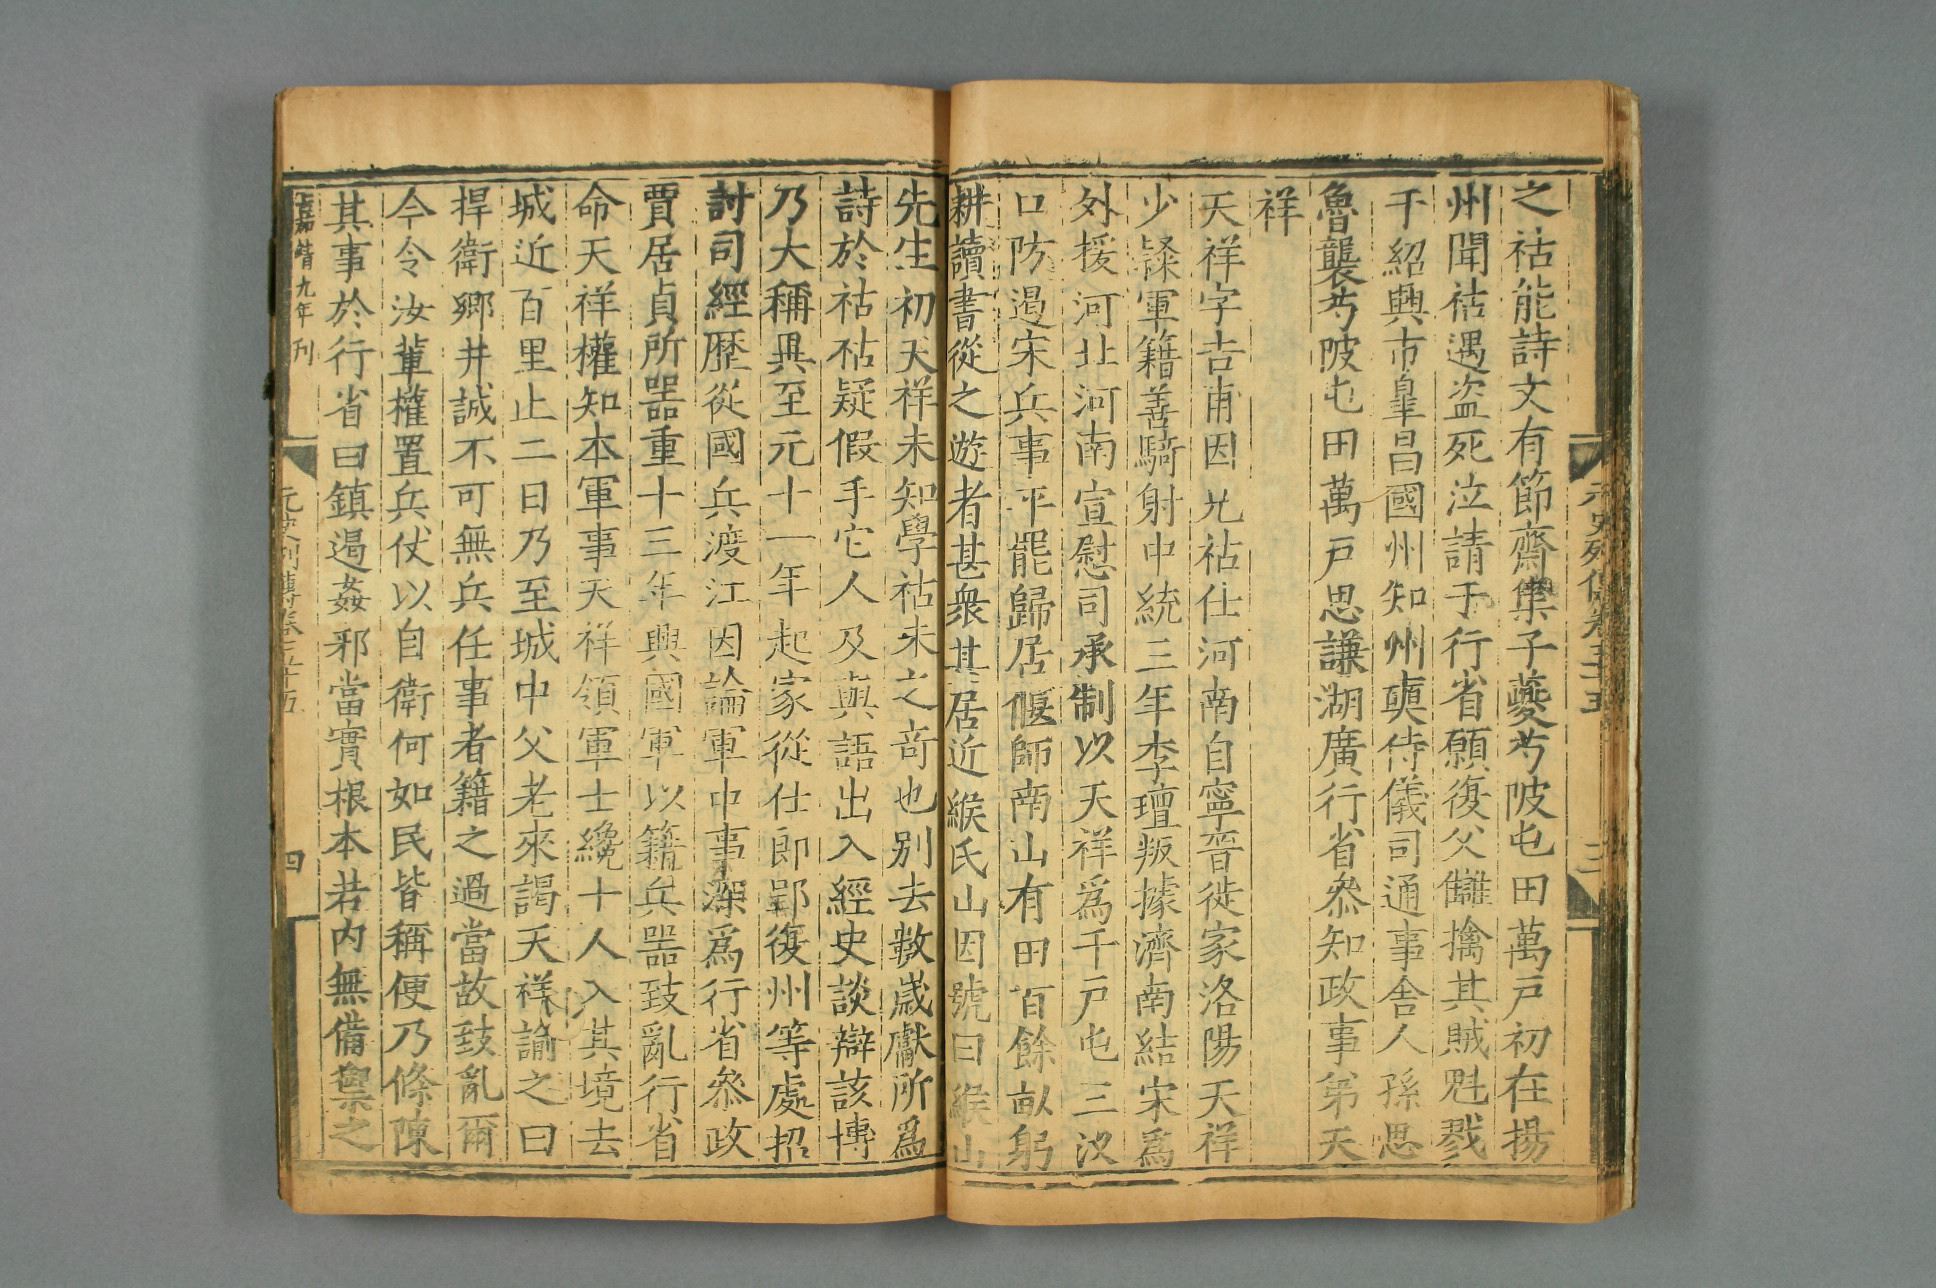 之祜能詩文有節齋集子蘷芍陂屯田萬戸初在揚
州聞祜遇盜死泣請于行省願復父讎擒其賊魁戮
于紹興市皐昌國州知州奭侍儀司通事舍人孫思
魯襲芍陂屯田萬戸思謙湖廣行省叅知政事弟天
祥
天祥字吉甫因兄祜仕河南自寧晉徙家洛陽天祥
少𨽻軍籍善騎射中統三年李璮叛據濟南結宋爲
外援河北河南宣慰司承制以天祥爲千戸屯三汊
口防遏宋兵事平罷歸居偃師南山有田百餘畝躬
耕讀書從之遊者甚衆其居近緱氏山因號曰緱山
先生初天祥未知學祜未之竒也别去數歲獻所爲
詩於祜祜疑假手它人及與語出入經史談辯該博
乃大稱異至元十一年起家從仕郎郢復州等處招
討司經歴從國兵渡江因論軍中事深爲行省叅政
賈居貞所噐重十三年興國軍以籍兵噐致亂行省
命天祥權知本軍事天祥領軍士纔十人入其境去
城近百里止二日乃至城中父老來謁天祥諭之曰
捍衛鄉井誠不可無兵任事者籍之過當故致亂爾
今令汝輩權置兵仗以自衛何如民皆稱便乃條陳
其事於行省曰鎮遏姦邪當實根本若内無備禦之
嘉靖九年刋
元史列傳卷五十五
四